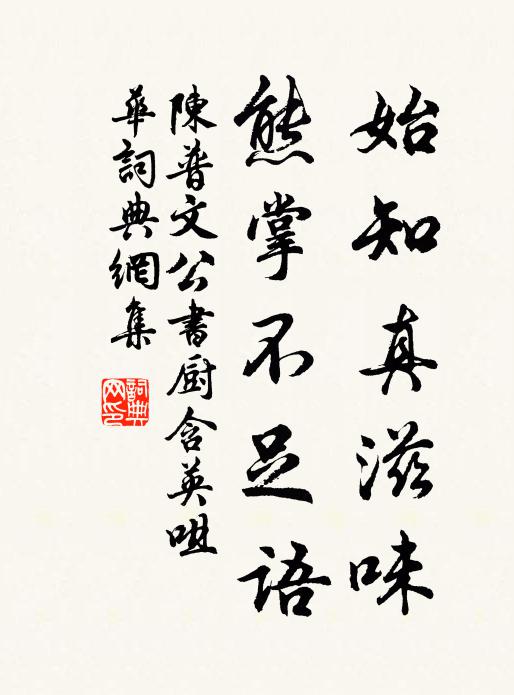 始知真滋味
熊掌不足語
陳普文公書厨含英咀
華詞典網集
詞典网印